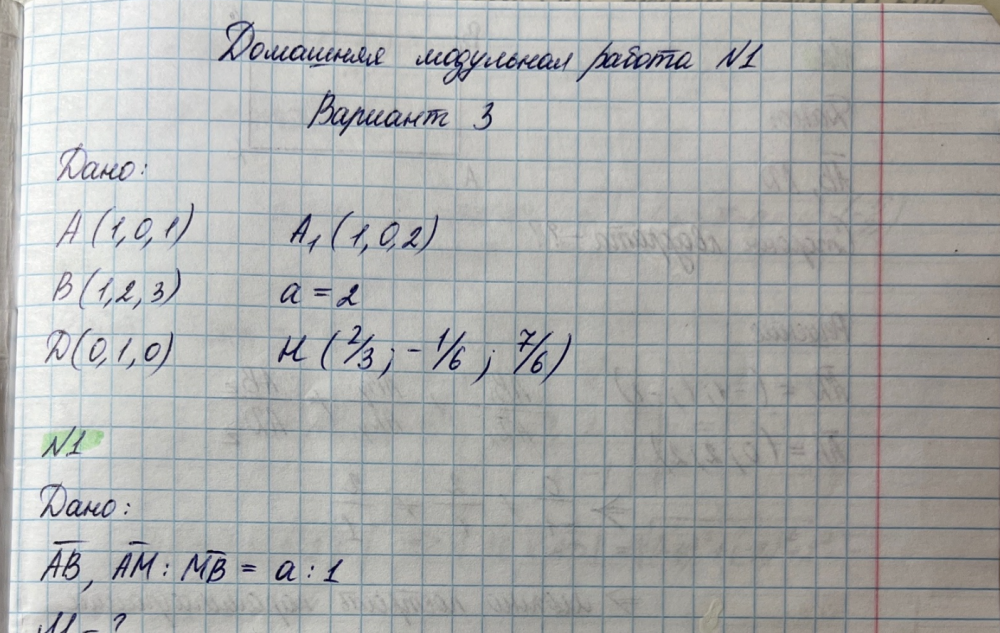 Домашняя модульная работа N1
Вариант 3
Дано:
A (1,0,1) A₁ (1,0,2)
B (1,2,3) a = 2
D (0,1,0) H (2/3; -1/6; 7/6)
N1
Дано:
AB, AM : MB = a : 1
M - ?